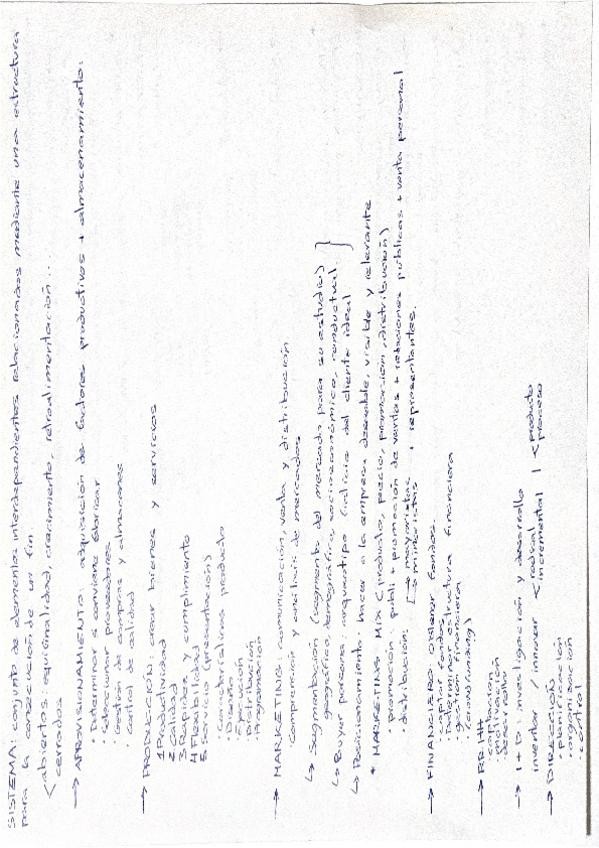 SISTEMA: conjunto de elementos interdependientes relacionados mediante una estructura
para la consecución de un fin.
< abiertos: equifinalidad, crecimiento, retroalimentación...
cerrados
→ APROVISIONAMIENTO: adquisición de factores productivos + almacenamiento:
· Determinar si conviene fabricar
· Seleccionar proveedores
· Gestión de compras y almacenes
· control de calidad
→ PRODUCCIÓN: crear bienes y servicios
1 Productividad
2 Calidad
3 Rapidez y cumplimiento
4 Flexibilidad
5 Servicio (presentación)
· Características producto
· Diseño
· Ejecución
· Distribución
· Programación
→ MARKETING: comunicación, venta y distribución
· Comprensión y análisis de mercados
↳ Segmentación (segmento del mercado para su estudio) }
geográfico, demográfico, socioeconómico, conductual
↳ Buyer persona: arquetipo del cliente ideal
↳ Posicionamiento: hacer a la empresa deseable, visible y relevante
* MARKETING MIX (producto, precio, promoción, distribución)
· promoción: publi + promoción de ventas + relaciones públicas + venta personal
· distribución: → mayoristas
→ minoristas representantes.
→ FINANCIERO: obtener fondos
· captar fondos
· estructura financiera
· gestión financiera
(crowdfunding)
→ RR.HH
· motivación
· desarrollo
→ I+D: investigación y desarrollo
inventar / innovar < radical
incremental | < producto
proceso
→ DIRECCIÓN
· planificación
· organización
· control